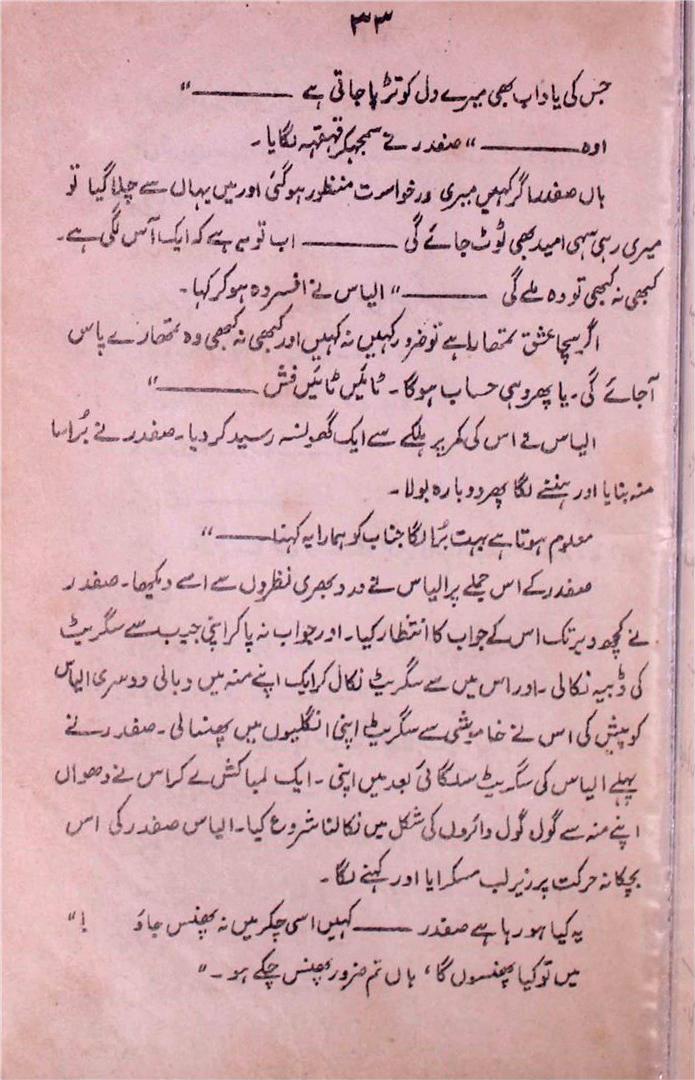 ۳۳
جس کی یاد اب بھی میرے دل کو تڑپا جاتی ہے ـــــــــ "
اوہ ـــــــــ " صفدر نے سمجھکر قہقہہ لگایا۔
ہاں صفدر اگر کہیں میری درخواست منظور ہوگئی اور میں یہاں سے چلا گیا تو
میری رہی سہی امید بھی ٹوٹ جائے گی ـــــــــ اب تو یہ ہے کہ ایک آس لگی ہے۔
کبھی نہ کبھی تو وہ ملے گی ـــــــــ " الیاس نے افسردہ ہوکر کہا۔
اگر سچا عشق تمھارا ہے تو ضرور کہیں نہ کہیں اور کبھی نہ کبھی وہ تمھارے پاس
آجائے گی۔ یا پھر وہی حساب ہوگا۔ ٹائیں ٹائیں فش ـــــــــ "
الیاس نے اس کی کمر پر ہلکے سے ایک گھونسہ رسید کر دیا۔ صفدر نے بُرا سا
منہ بنایا اور ہنسنے لگا پھر دوبارہ بولا۔
معلوم ہوتا ہے بہت بُرا لگا جناب کو ہمارا یہ کہنا ـــــــــ "
صفدر کے اس جملے پر الیاس نے درد بھری نظروں سے اسے دیکھا۔ صفدر
نے کچھ دیر تک اس کے جواب کا انتظار کیا۔ اور جواب نہ پاکر اپنی جیب سے سگریٹ
کی ڈبیہ نکالی۔ اور اس میں سے سگریٹ نکال کر ایک اپنے منہ میں دبالی دوسری الیاس
کو پیش کی اس نے خاموشی سے سگریٹ اپنی انگلیوں میں پھنسالی۔ صفدر نے
پہلے الیاس کی سگریٹ سلگائی بعد میں اپنی۔ ایک لمبا کش لے کر اس نے دھواں
اپنے منہ سے گول گول دائروں کی شکل میں نکالنا شروع کیا۔ الیاس صفدر کی اس
بچکانہ حرکت پر زیر لب مسکرایا اور کہنے لگا۔
یہ کیا ہو رہا ہے صفدر ـــــــــ کہیں اسی چکر میں نہ پھنس جاؤ !"
میں تو کیا پھنسوں گا، ہاں تم ضرور پھنس چکے ہو۔"